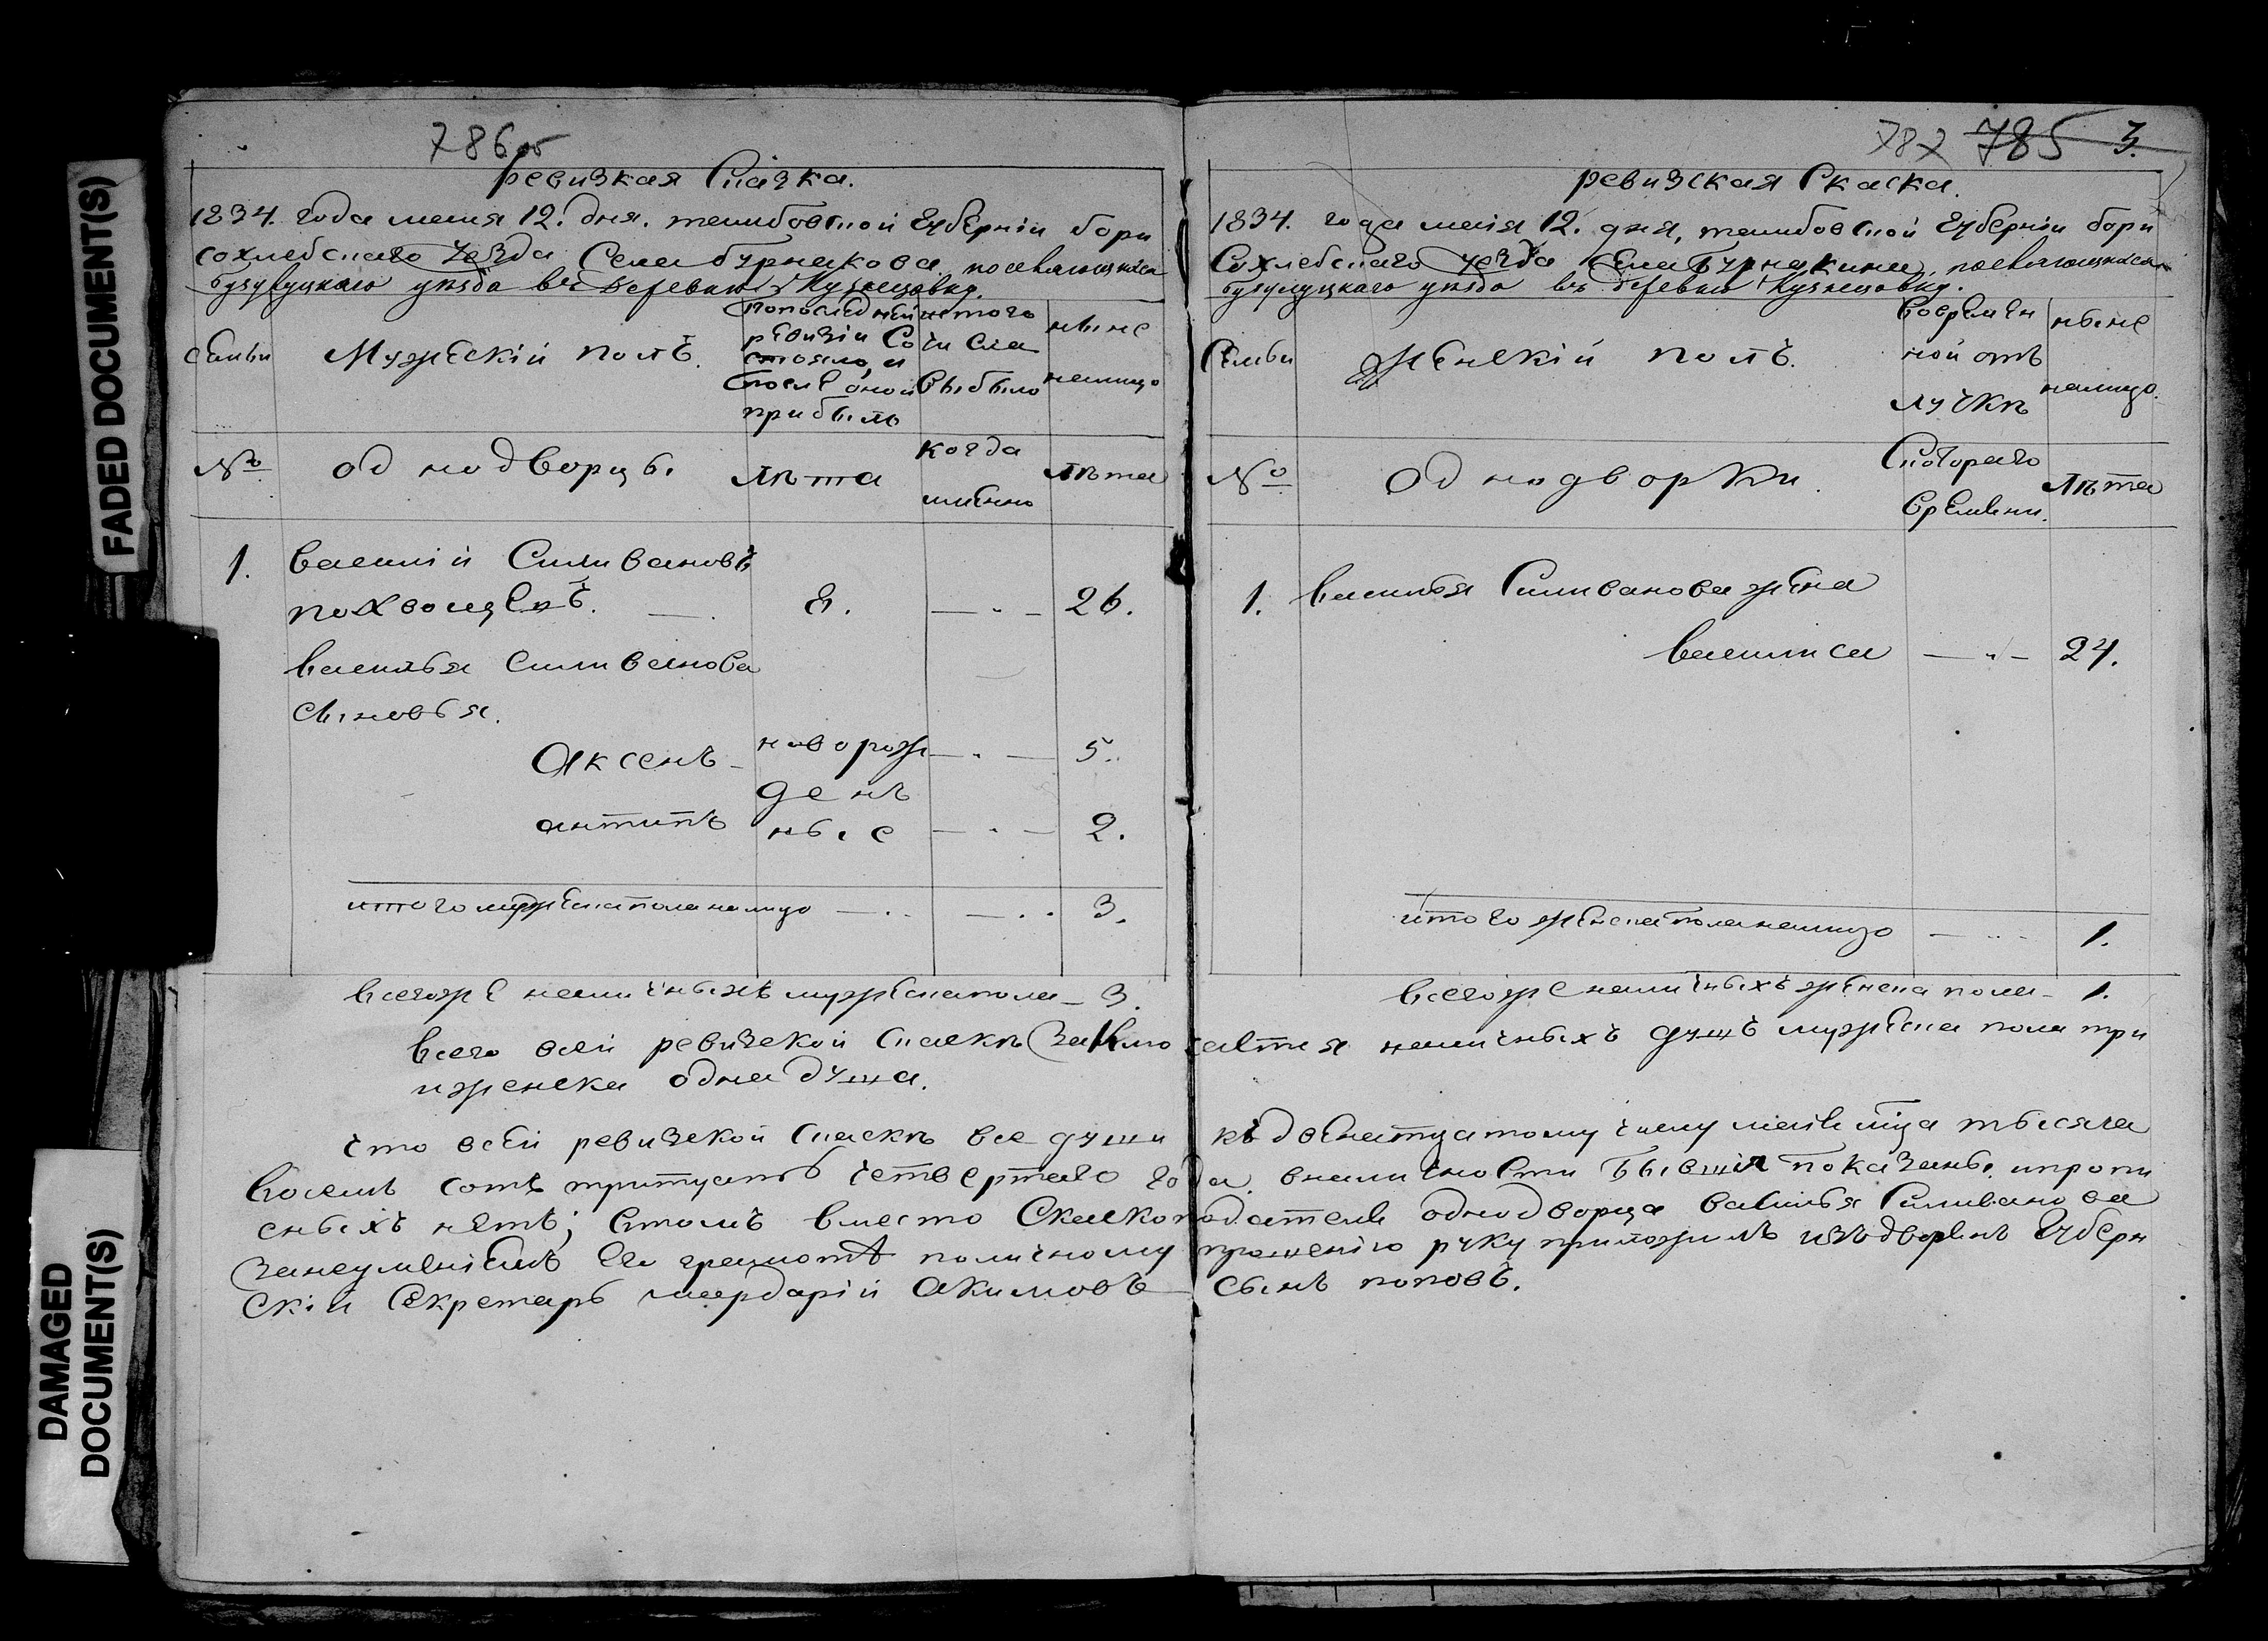 FADED DOCUMENT(S)
DAMAGED
DOCUMENT(S)
786об
ревизкая Сказка.
1834. года мaия 12. дня. тамбовской Губернiи бори
сохлебскаго Уезда Села бурнакова, поселяющихся
бузулуцкаго уѣзда въ деревню Кузнецовку.
семьи
Мужескiй полъ.
Попоследней
ревизiи Со
стояло, и
после оной
прибыль
изтого
числа
выбыло
ныне
налицо
№
однодворцы
лѣта
когда
имянно
лѣта
1. василiй Силивановъ
похвощевъ. 8. 26.
василья силиванова
сыновья.
Аксенъ новорож 5.
ден
антипъ ные 2.
итого мужеска пола налицо 3.
всегоже наличныхъ мужеска пола 3.
787 785 3.
ревизская Скаска.
1834. года маiя 12. дня, тамбовской Губернiи бори
Сохлебскаго Уезда Села Бурнакина, поселяющихся
бузулуцкаго уѣзда въ деревню Кузнецовку.
Семьи
Женскiй полъ.
Вовремен
ной отъ
лучкѣ
ныне
налицо.
№
Однодворки.
Скотораго
времени.
Лѣта
1. василья Силиванова жена
василиса 24.
итого женска пола налицо 1.
всегоже наличныхъ женска пола 1.
всего всей ревизской Скаскѣ Заключается наличныхъ душъ мужеска пола три
иженска одна душа.
что всей ревизской Скаскѣ все души къ двенатцатому числу маiя мца тысяча
восемъ сотъ тритцать четвертаго года. вналичности бывшiя показаны. ипропи
сныхъ нетъ; втомъ вместо Скаскоподателя однодворца василья Силиванова
занеуменiемъ Его грамотѣ поличному прошенiю руку приложилъ изъдворянъ Губерн
скiй Секретарь мардарiй Акимовъ сынъ поповъ.